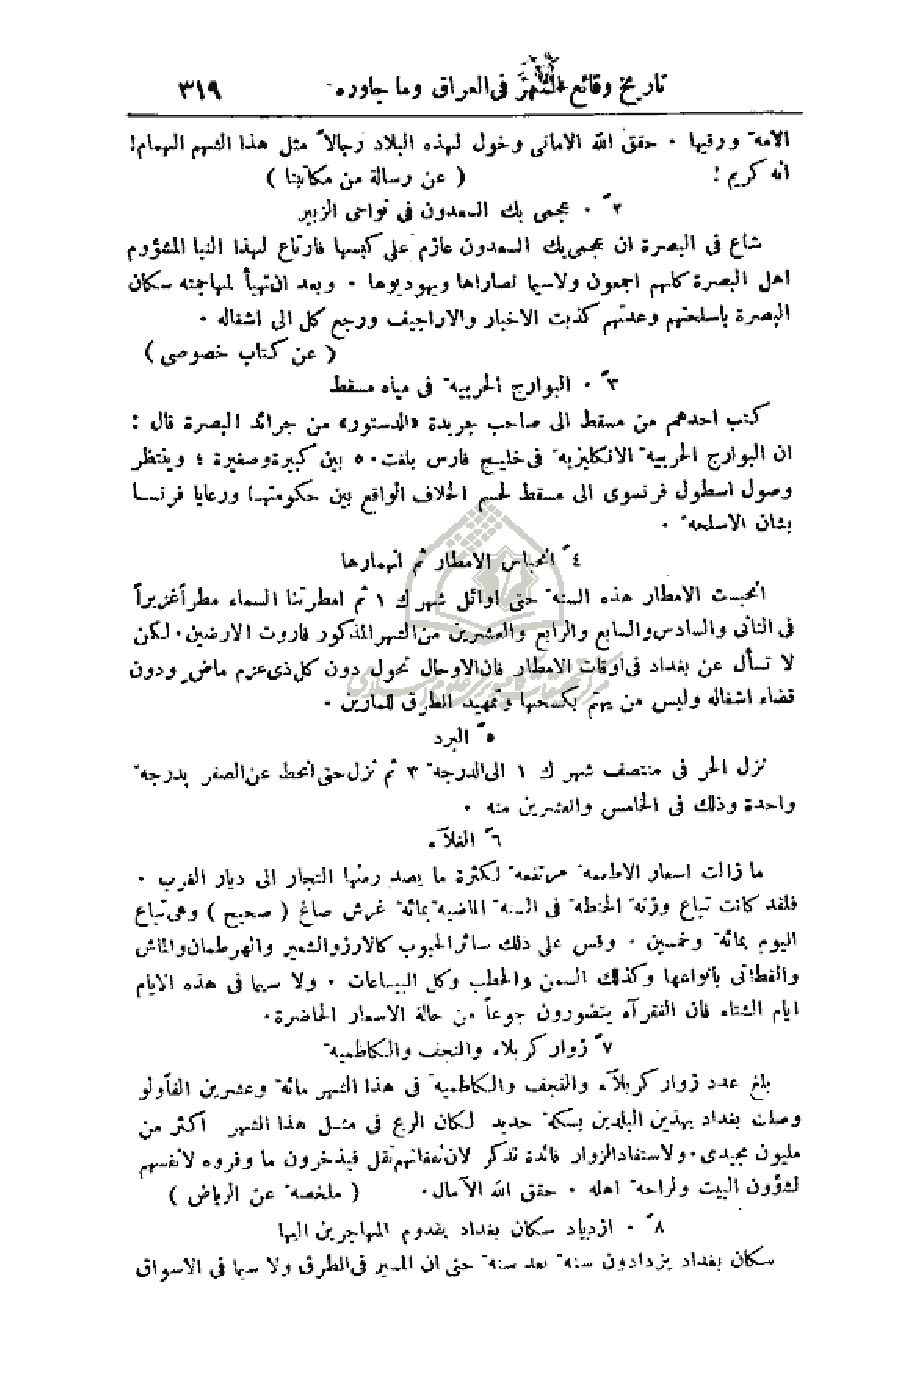 تاريخ وقائع الشهر فى العراق وما جاوره ٣١٩
الامة ورقيها ٠ حقق الله الامانى وخول لهذه البلاد رجالاً مثل هذا الشهم الهمام!
انه كريم! ( عن رسالة من مكاتبنا )
٢ً ٠ عجمى بك السعدون فى نواحى الزبير
شاع فى البصرة ان عجمى بك السعدون عازم على كبسها فارتاع لهذا النبا المشؤوم
اهل البصرة كلهم اجمعون ولاسيما نصاراها ويهوديوها ٠ وبعد ان تهيأ لمهاجمته سكان
البصرة باسلحتهم وعدتهم كذبت الاخبار والاراجيف ورجع كل الى اشغاله ٠
( عن كتاب خصوصى )
٣ً ٠ البوارج الحربية فى مياه مسقط
كتب احدهم من مسقط الى صاحب جريدة «الدستور» من جرائد البصرة قال :
ان البوارج الحربية الانكليزية فى خليج فارس بلغت ٥٠ بين كبيرة وصغيرة ؛ وينتظر
وصول اسطول فرنسوى الى مسقط لحسم الخلاف الواقع بين حكومتها ورعايا فرنسا
بشان الاسلحة ٠
٤ً انحباس الامطار ثم انهمارها
انحبست الامطار هذه السنة حتى اوائل شهر ك ١ ثم امطرتنا السماء مطراً غزيراً
فى الثانى والسادس والسابع والرابع والعشرين من الشهر المذكور فاروت الارضين ٠ لكن
لا تسأل عن بغداد فى اوقات الامطار فان الاوحال تحول دون كل ذى عزم ماض ودون
قضاء اشغاله وليس من يهتم بكسحها وتمهيد الطرق للمارين ٠
٥ً البرد
نزل الحر فى منتصف شهر ك ١ الى الدرجة ٣ ثم نزل حتى انحط عن الصفر بدرجة
واحدة وذلك فى الخامس والعشرين منه ٠
٦ً الغلآء
ما زالت اسعار الاطعمة مرتفعة لكثرة ما يصدر منها التجار الى ديار الغرب ٠
فلقد كانت تباع وزنة الحنطة فى السنة الماضية بمائة غرش صاغ ( صحيح ) وهى تباع
اليوم بمائة وخمسين ٠ وقس على ذلك سائر الحبوب كالارز والشعير والهرطمان والماش
والقطانى بانواعها وكذلك السمن والحطب وكل البياعات ٠ ولا سيما فى هذه الايام
ايام الشتاء فان الفقرآء يتضورون جوعاً من حالة الاسعار الحاضرة ٠
٧ً زوار كربلاء والنجف والكاظمية
بلغ عدد زوار كربلآء والنجف والكاظمية فى هذا الشهر مائة وعشرين الفاً ولو
وصلت بغداد بهذين البلدين بسكة حديد لكان الربح فى مثل هذا الشهر اكثر من
مليون مجيدى ٠ ولاستفاد الزوار فائدة تذكر لان نفقاتهم تقل فيدخرون ما وفروه لانفسهم
لشؤون البيت ولراحة اهله ٠ حقق الله الآمال ٠ ( ملخصة عن الرياض )
٨ً ٠ ازدياد سكان بغداد بقدوم المهاجرين اليها
سكان بغداد يزدادون سنة بعد سنة حتى ان السير فى الطرق ولا سيما فى الاسواق